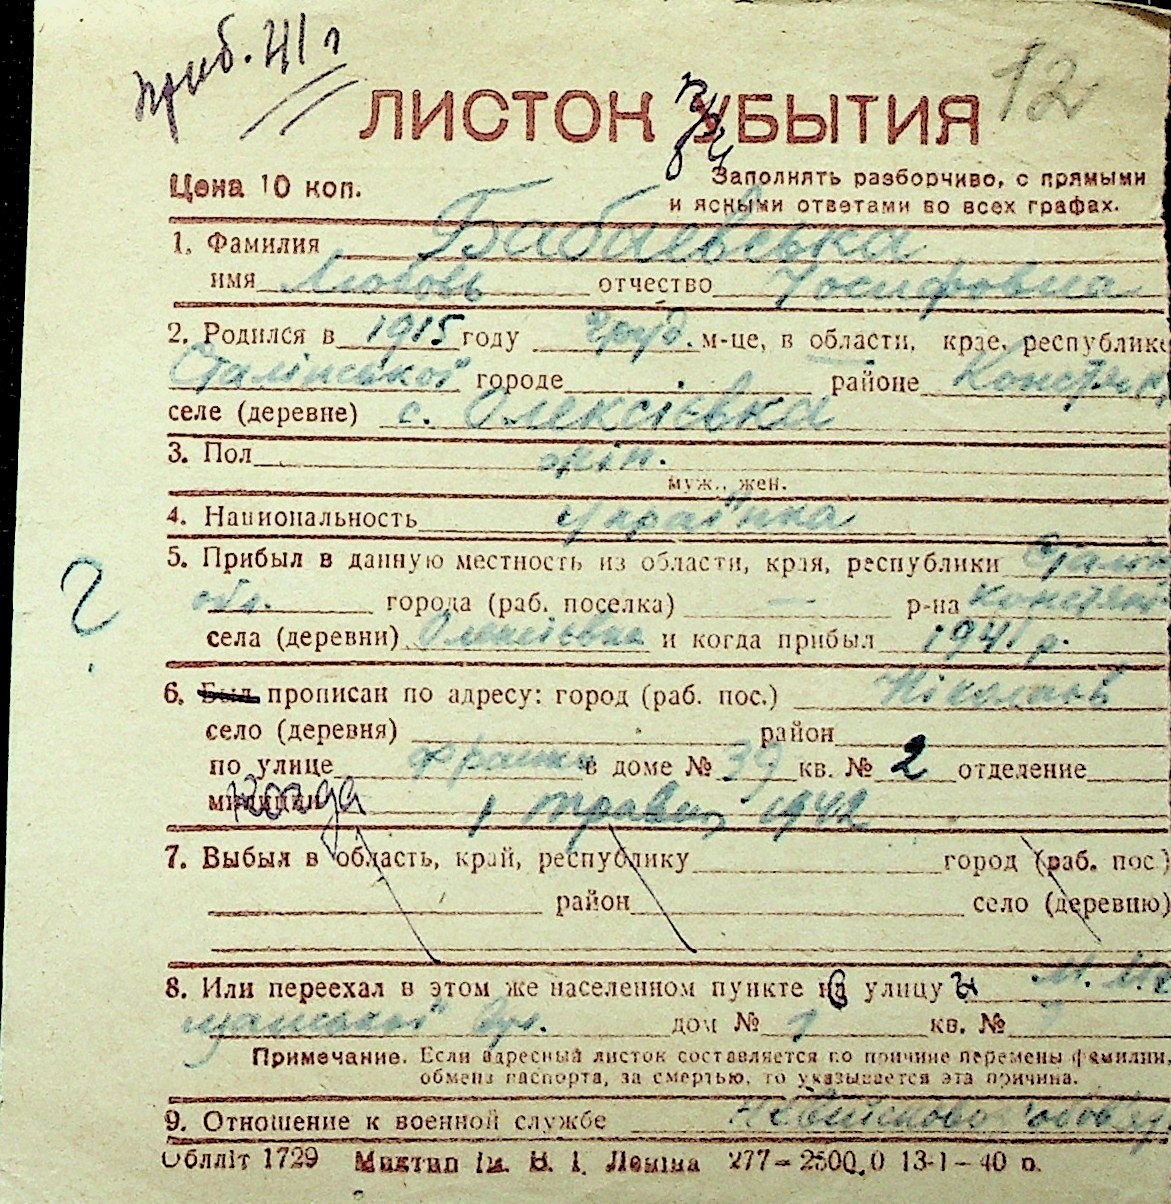 приб. 41 г
12
ЛИСТОК УБЫТИЯ
Цена 10 коп.
Заполнять разборчиво, с прямыми
и ясными ответами во всех графах.
1. Фамилия Бабаевська
имя Любовь отчество Іосифовна
2. Родился в 1915 году груд. м-це, в области, крае, республике
Сталінської городе районе Конст
селе (деревне) с. Олексієвка
3. Пол жін.
муж., жен.
4. Национальность українка
5. Прибыл в данную местность из области, края, республики Сталін
обл. города (раб. поселка) — р-на Констян
села (деревни) Олексієвка и когда прибыл 1941 р.
?
6. Был прописан по адресу: город (раб. пос.)
село (деревня) район
по улице Франка в доме № 39 кв. № 2 отделение
когда 1 травн 1942
7. Выбыл в область, край, республику город (раб. пос.)
район село (деревню)
8. Или переехал в этом же населенном пункте на улицу
дом № кв. №
Примечание. Если адресный листок составляется по причине перемены фамилии,
обмена паспорта, за смертью, то указывается эта причина.
9. Отношение к военной службе Не військовозобов
Облліт 1729 Миктип ім. В. І. Леніна 277–2500.0 13-1–40 р.